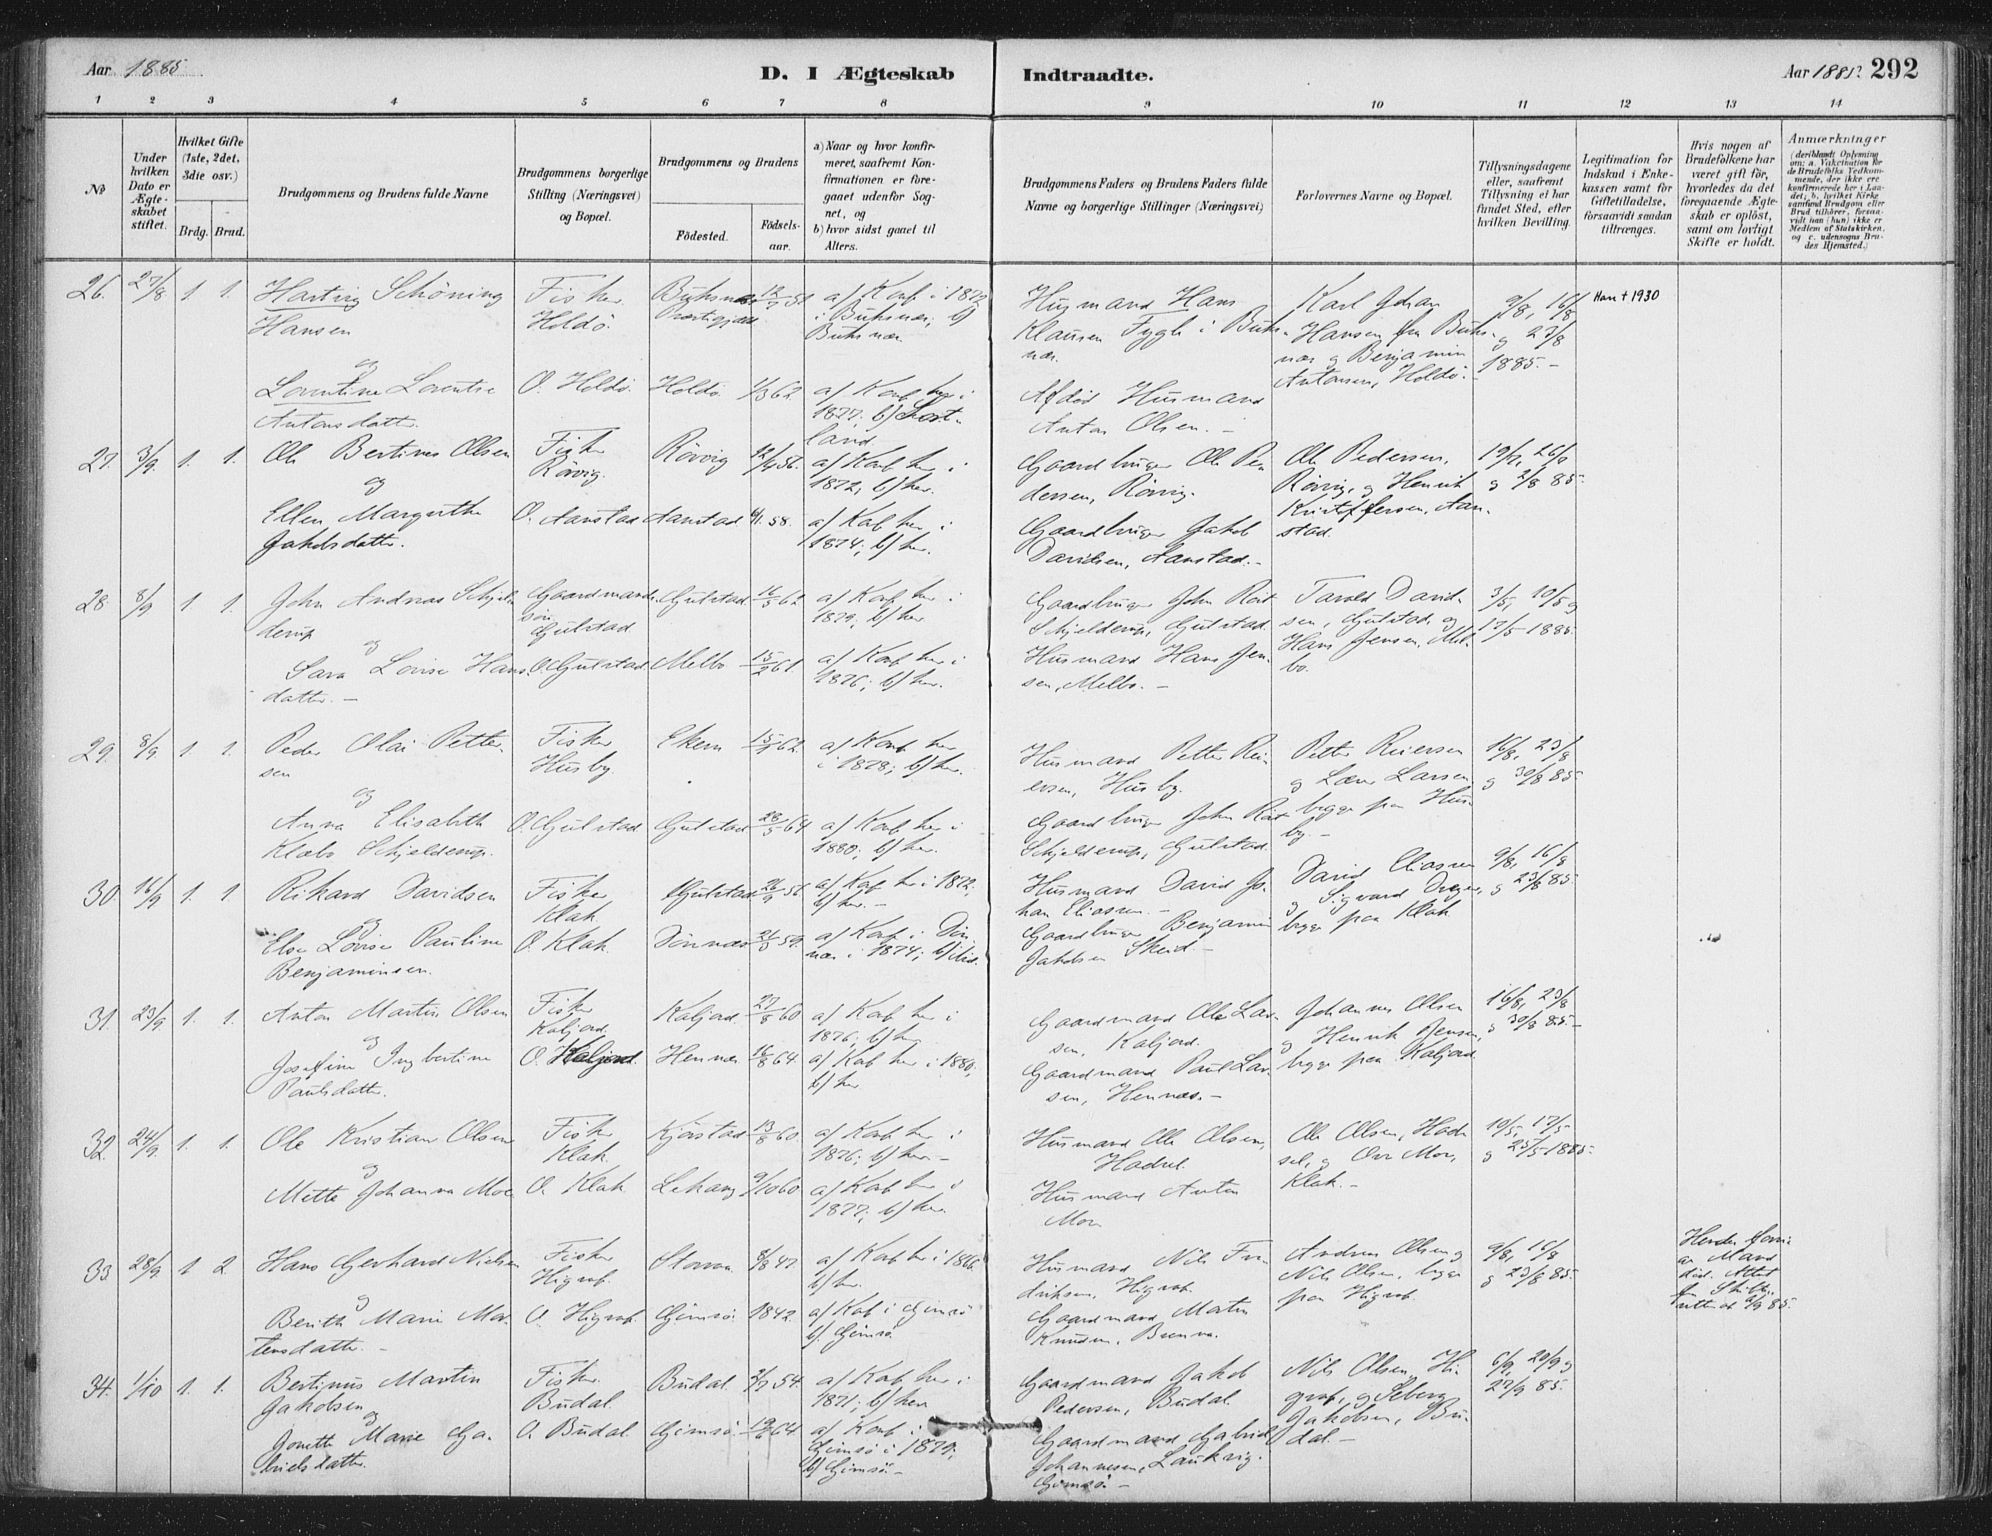 Aar 1885
D. I Ægteskab Indtraadte.
Aar 1885 292
1 2 3 4 5 6 7 8 9 10 11 12 13 14
No
Under hvilken Dato er Ægteskabet stiftet.
Hvilket Gifte (1ste, 2det, 3die osv.)
Brdg. Brud.
Brudgommens og Brudens fulde Navne
Brudgommens borgerlige Stilling (Næringsvei) og Bopæl.
Brudgommens og Brudens
Födested.
Födselsaar.
a) Naar og hvor konfirmeret, saafremt Konfirmationen er foregaaet udenfor Sognet, og
b) hvor sidst gaaet til Alters.
Brudgommens Faders og Brudens Faders fulde Navne og borgerlige Stillinger (Næringsvei)
Forlovernes Navne og Bopæl.
Tillysningsdagene eller, saafremt Tillysning ei har fundet Sted, efter hvilken Bevilling.
Legitimation for Indskud i Enkekassen samt for Giftetilladelse, forsaavidt saadan tiltrænges.
Hvis nogen af Brudefolkene har været gift för, hvorledes da det foregaaende Ægteskab er oplöst, samt om lovligt Skifte er holdt.
Anmærkninger
26. 27/8 1. 1. Hartvig Schöning
Hansen
og
Lorentine Lorentse
Antonsdatter.
Fisker
Holdö.
O. Holdö.
Holdö. 1/3 62.
a) Konf. i 1872
i Buksnæs; b)
Buksnæs
a) Konf. her i
1877. b) Hort-
land
Husmand Hans
Klausen Tygh i Buks-
næs.
Afdöd Husmand
Anton Olsen. -
Karl Johan
Hansen fra Buks-
næs og Benjamin
Antonsen, Holdö. -
9/8, 16/8
og 23/8
1885. -
Han † 1930
27. 3/9. 1. 1. Ole Bertinus Olsen
og
Ellen Margrethe
Jakobsdatter.
Fisker
Rörvig.
O. Aanstad
Rörvig
Aanstad 58.
a) Konf. her i
1872, b) her.
a) Konf. her i
1874; b) her.
Gaardbruger Ole Pe-
dersen, Rörvig.
Gaardbruger Jakob
Davidsen, Aanstad. -
Ole Pedersen,
Rörvig, og Henrik
Kristoffersen, Aan-
stad.
28. 8/9 1. 1. John Andreas Schjel-
derup
og
Sara Lovise Hans-
datter. -
Gaardmands-
sön
Gulstad
O. Gulstad
Gulstad 16/5 62
Melbo 15/2 61.
a) Konf. her i
1879; b) her
a) Konf. her i
1876; b) her.
Gaardbruger John Rist
Schjelderup, Gulstad
Husmand Hans Jen-
sen, Melbo. -
David-
sen, Gulstad, og
Hans Jensen, Mel-
bo.
3/5, 10/5 og
17/5 1885.
29. 8/9. 1. 1. Peder Olai Petter-
sen
og
Anna Elisabeth
Klæbo Schjelderup.
Fisker
Husby.
O. Gulstad
Ekren 62.
Gulstad 28/5 64
a) Konf. her
i 1878; b) her.
a) Konf. her i
1880; b) her.
Husmand Petter Rei-
ersen, Husby.
Gaardbruger John Rist
Schjelderup, Gulstad.
Petter Reiersen
og Larsen,
begge paa Hus-
by. -
16/8, 23/8
og 30/8 85-
30. 16/9 1. 1. Rikard Davidsen
og
Else Lovise Pauline
Benjaminsen.
Fisker
Klak.
O. Klak.
Gulstad
Dönnæs 59.
a) Konf. her i 1872,
b) her. -
a) Konf. i Dön-
næs i 1874; b) ibid.
Husmand David Jo-
han Eliassen. -
Gaardbruger Benjamin
Jakobsen Skeid. -
David Eliassen
og Sigvard
begge paa Klak
9/8, 16/8
og 23/8 85.
31. 23/9 1. 1. Anton Martin Olsen
og
Josefine Ingbertine
Paulsdatter.
Fisker
Kaljord.
O. Kaljord.
Kaljord. 27/8 60
Hennæs 64.
a) Konf. her i
1876; b) her
a) Konf. her i 1880,
b) her.
Gaardmand Ole Lar-
sen, Kaljord.
Gaardmand Paul Lar-
sen, Hennæs. -
Johannes Olsen
og Henrik Jensen,
begge paa Kaljord.
16/8, 23/8
og 30/8 85. -
32. 24/9. 1. 1. Ole Kristian Olsen
og
Mette Johanna Moe
Fisker
Klak.
O. Klak
Kjörstad 13/8 60.
Lekang 9/10 60.
a) Konf. her i
1876; b) her. -
a) Konf. her i
1877; b) her.
Husmand Ole Olsen,
Hadsel.
Husmand Anton
Moe
Ole Olsen, Had-
sel, og Moe,
Klak. -
10/5, 17/5
og 25/5 1885-
33. 28/9 1 2. Hans Gerhard Nielsen
og
Berith Marie Mor-
tensdatter. -
Fisker
Higrav.
O. Higrav.
8/8 47.
Gimsö. 1842.
a) Konf. her i 1866.
b) her.
a) Konf. i Gimsö
b) Gimsö.
Husmand Nils Fre-
driksen, Higrav.
Gaardmand Martin
Knudsen, Brenna.
Andreas Olsen og
Nils Olsen, begge
paa Higrav.
9/8, 16/8
og 23/8 85.
Hendes forri-
ge Mand
död. Attest
fra Skifte-
retten 85.
34. 1/10 1. 1. Bertinus Martin
Jakobsen
og
Jonette Marie Ga-
brielsdatter.
Fisker.
Budal.
O. Budal
Budal. 54.
Gimsö. 64.
a) Konf. her i
1871; b) her
a) Konf. i
Gimsö i 1879;
b) Gimsö. -
Gaardmand Jakob
Pedersen, Budal.
Gaardmand Gabriel
Johannesen, Laukvig.
Gimsö. -
Nils Olsen, Hi-
grav, og Seberg
Jakobsen, Bu-
dal. -
6/9, 20/9 og
27/9 85.